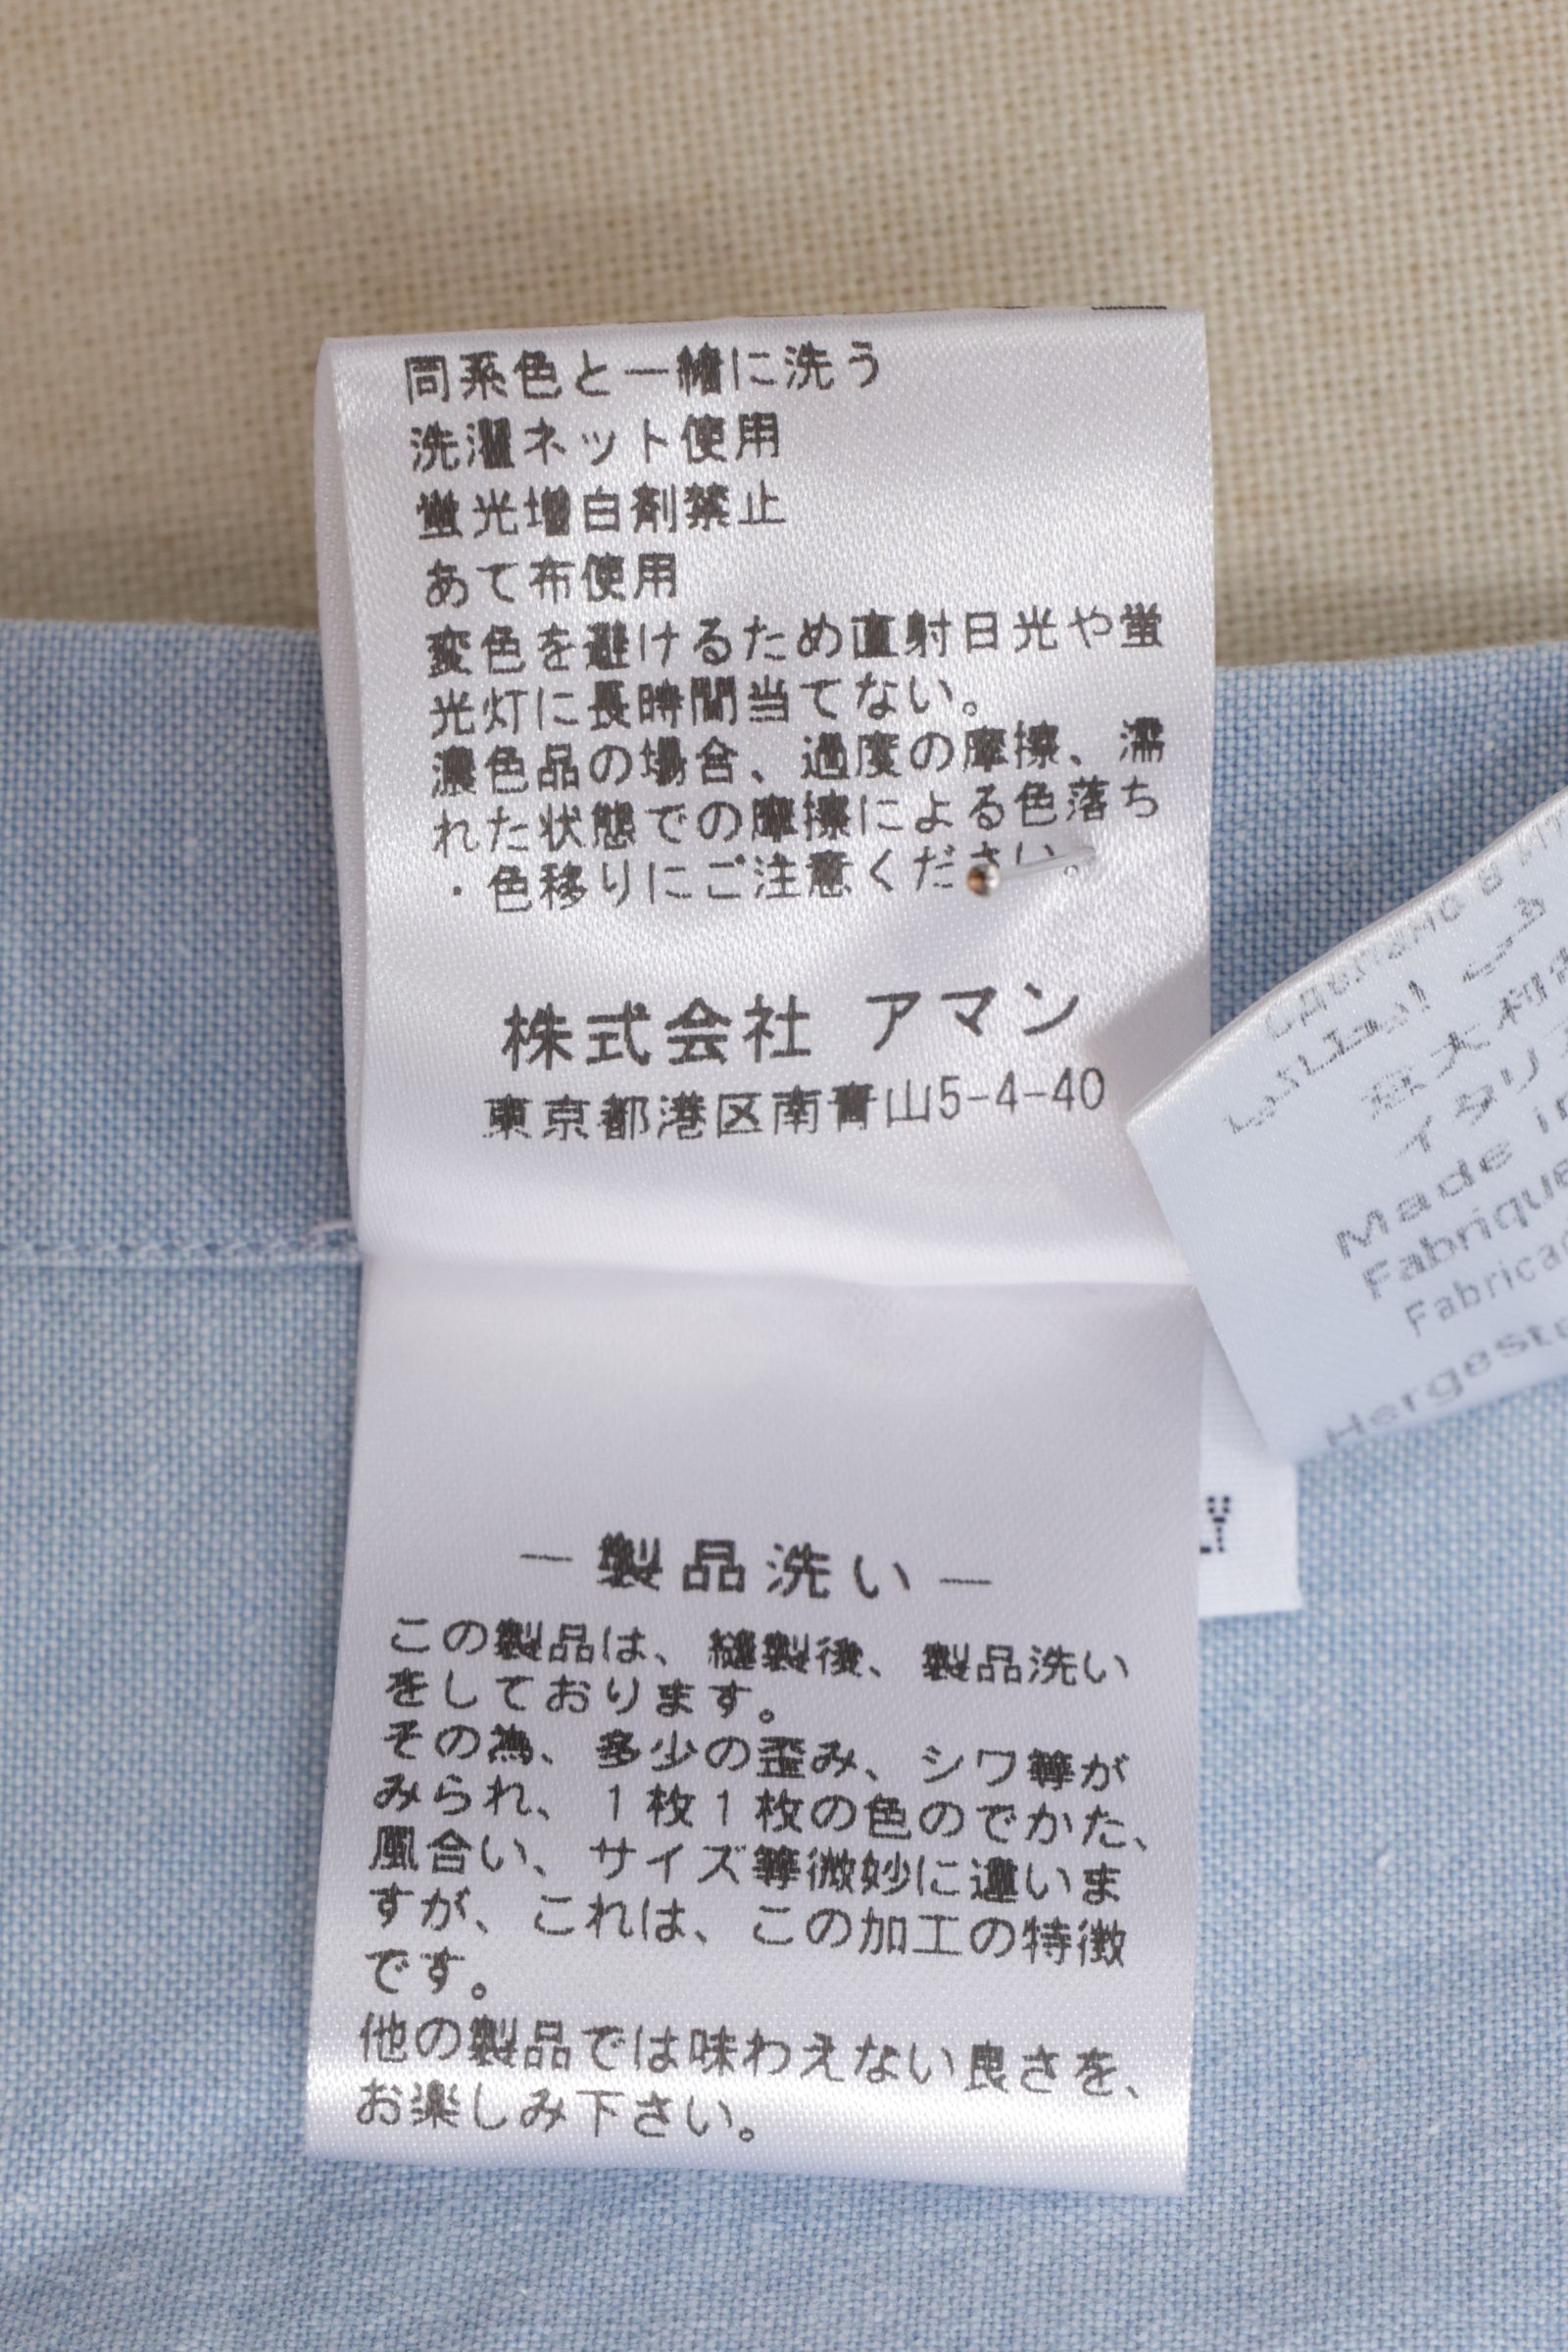 同系色と一緒に洗う
洗濯ネット使用
蛍光増白剤禁止
あて布使用
変色を避けるため直射日光や蛍
光灯に長時間当てない。
濃色品の場合、過度の摩擦、濡
れた状態での摩擦による色落ち
・色移りにご注意ください。
株式会社 アマン
東京都港区南青山5-4-40
－製品洗い－
この製品は、縫製後、製品洗い
をしております。
その為、多少の歪み、シワ等が
みられ、1枚1枚の色のでかた、
風合い、サイズ等微妙に違いま
すが、これは、この加工の特徴
です。
他の製品では味わえない良さを、
お楽しみ下さい。
意大利
イタリ
Made in
Fabriqué
Fabricad
Hergeste
LY